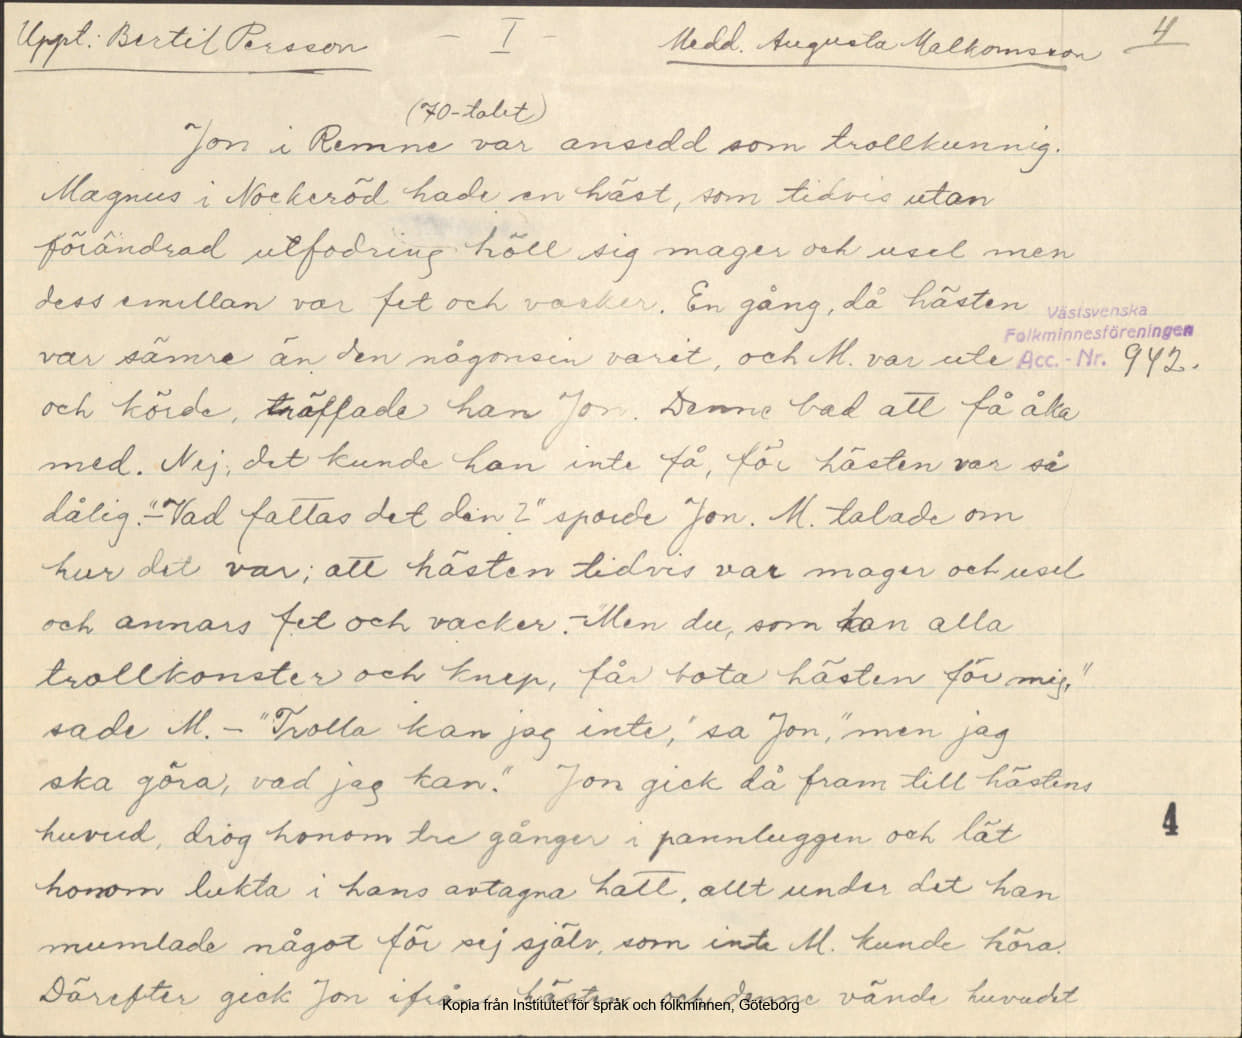 Uppt: Bertil Persson
- I -
Medd. Augusta Malkomsson
4
(70-talet)
Jon i Remne var ansedd som trollkunnig.
Magnus i Nockeröd hade en häst, som tidvis utan
förändrad utfodring höll sig mager och usel men
dess emellan var fet och vacker. En gång, då hästen
Västsvenska
Folkminnesföreningen
Acc. - Nr. 942.
var sämre än den någonsin varit, och M. var ute
och körde, träffade han Jon. Denne bad att få åka
med. Nej, det kunde han inte få, för hästen var så
dålig. "-Vad fattas det den?" sporde Jon. M. talade om
hur det var; att hästen tidvis var mager och usel
och annars fet och vacker. -"Men du, som kan alla
trollkonster och knep, får bota hästen för mig,"
sade M. - "Trolla kan jag inte," sa Jon, "men jag
ska göra, vad jag kan." Jon gick då fram till hästens
huvud, drog honom tre gånger i pannluggen och lät
4
honom lukta i hans avtagna hatt, allt under det han
mumlade något för sej själv, som inte M. kunde höra.
Därefter gick Jon ifrån hästen och denne vände huvudet
Kopia från Institutet för språk och folkminnen, Göteborg